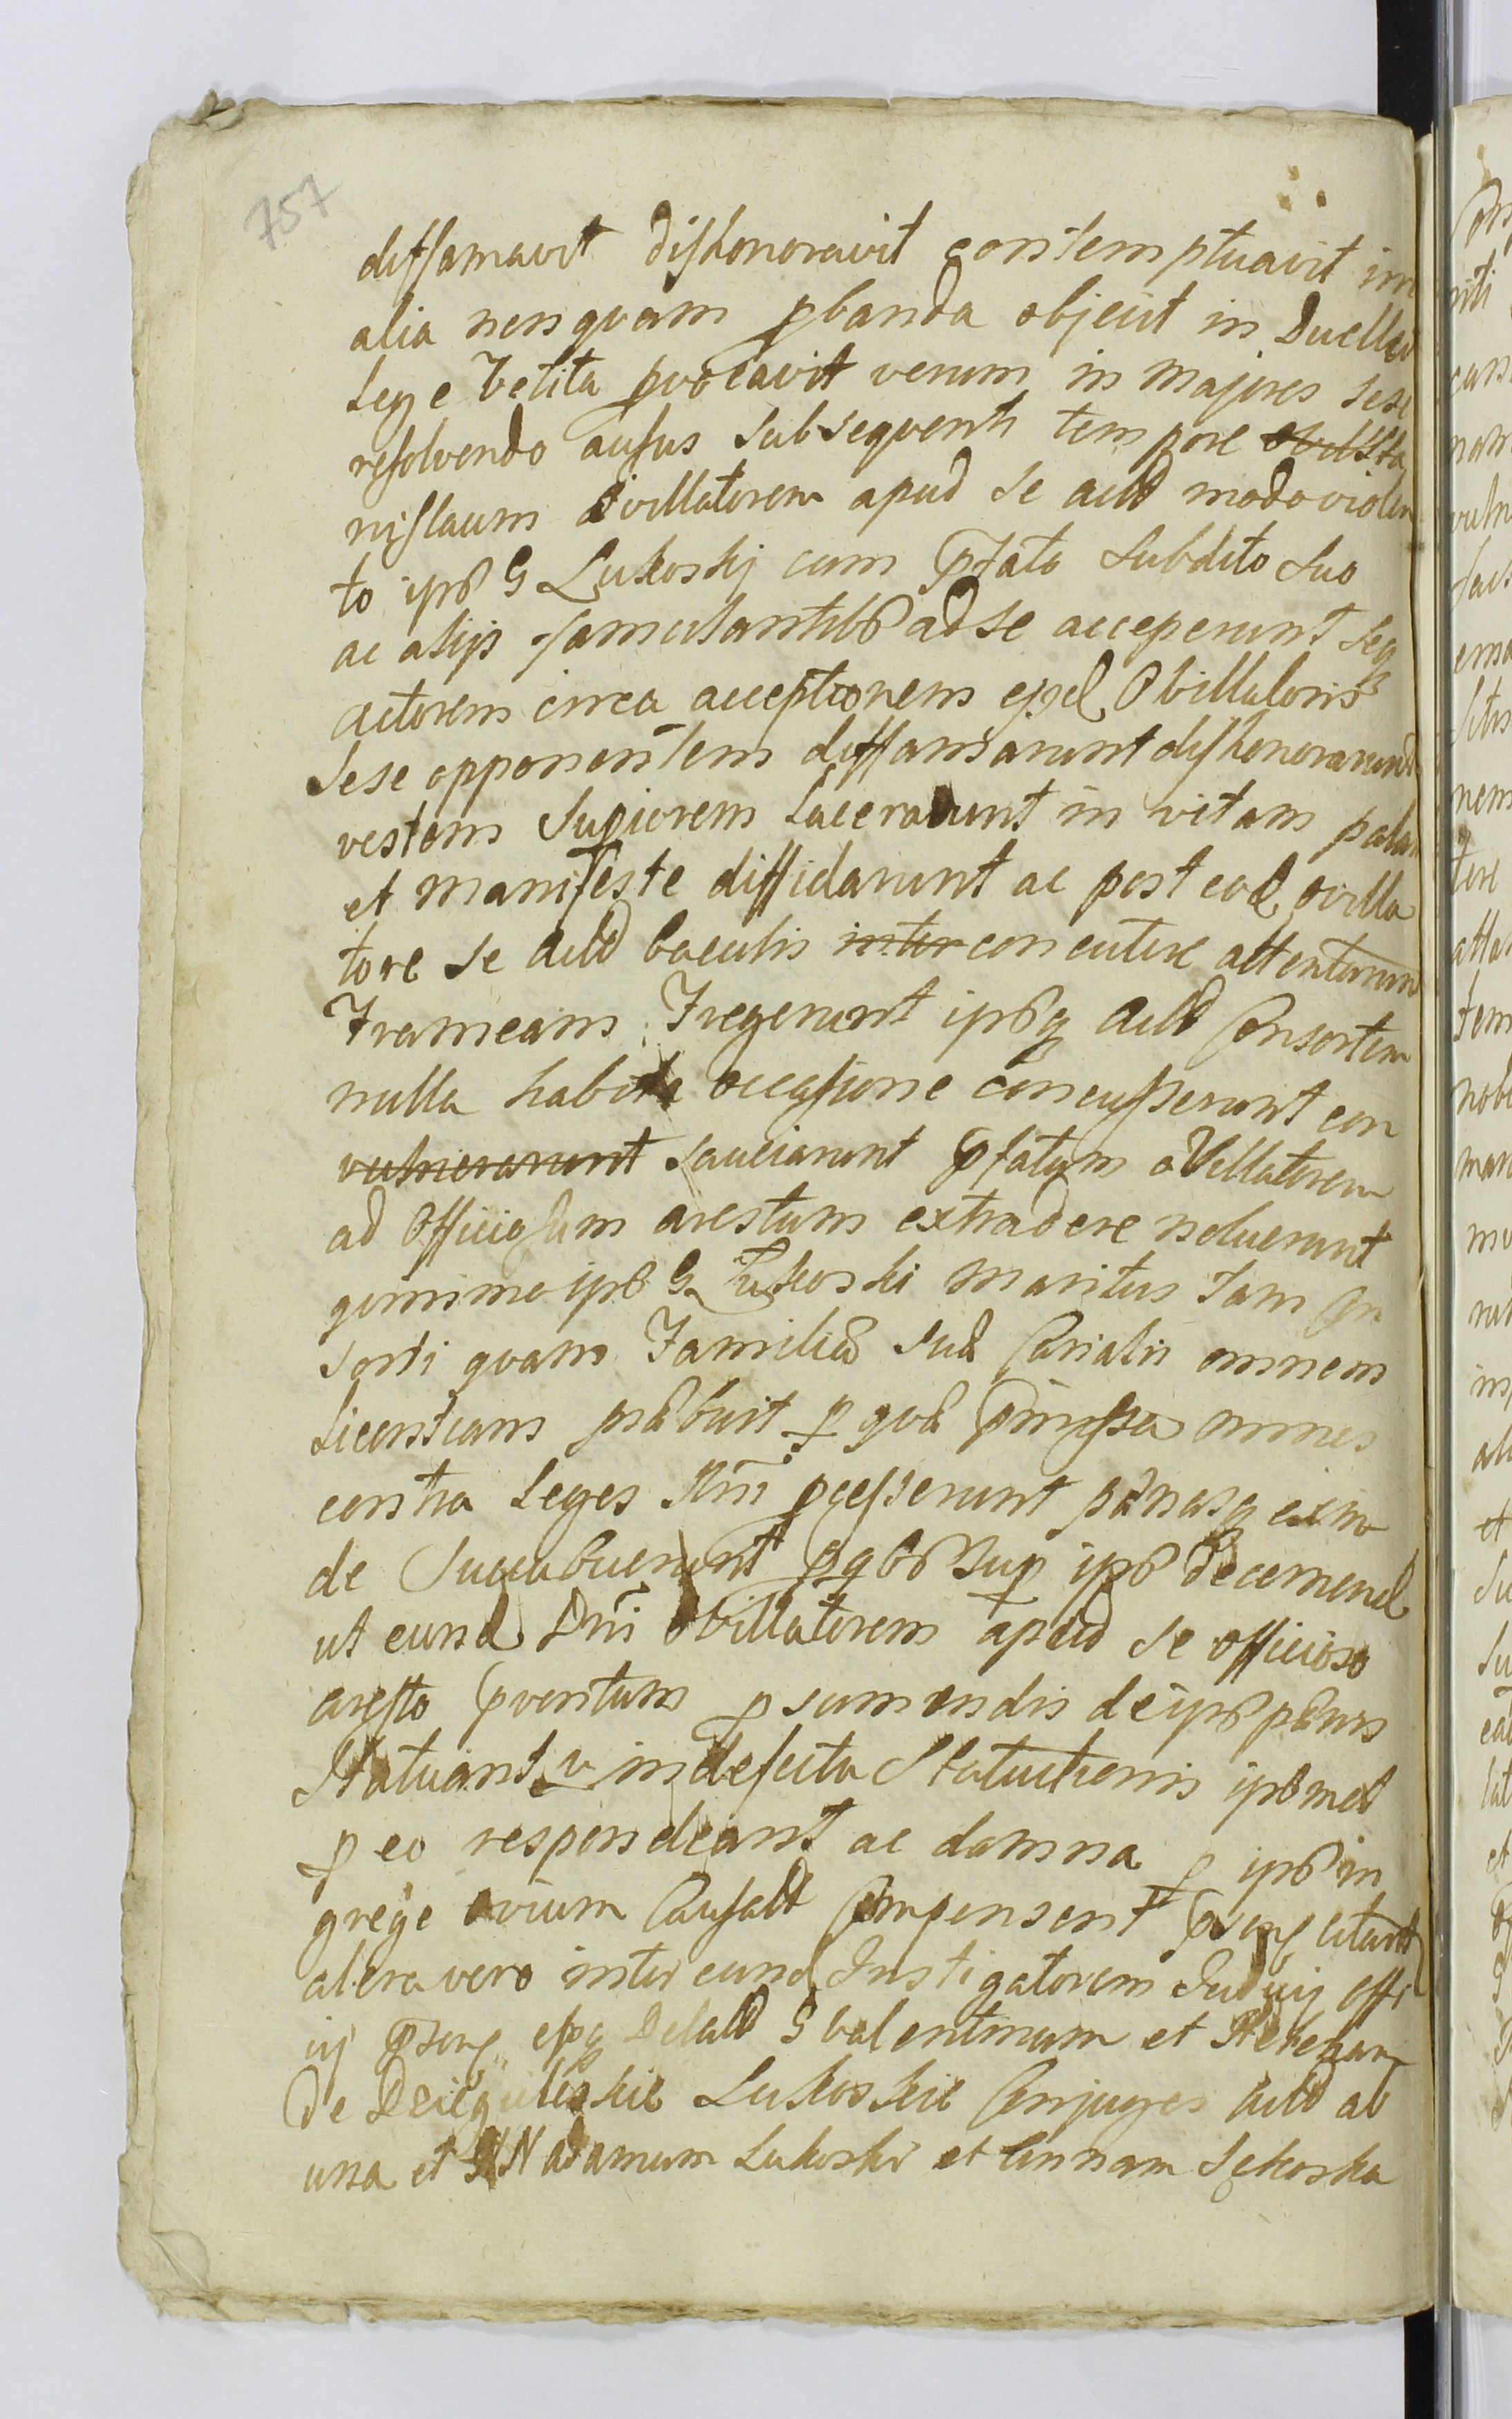 757
diffamavit dishonoravit contemptuavit im
alia nenquam pbanda objecit in Duellu
Lege Vetita pvocavit verum in majores sese
resolvendo ausus subsequenti tempore Sta
nislaum ovillatorem apud se actd modo violen
to ipso G Lukoski cum Pfato Subdito suo
ac alijs famulantibs ad se acceperunt seq
actorem circa acceptionem ejsd Ovillatoris
Sese opponentem diffamarunt dishonorarunt
vestem Supiorem Lacerarunt in vitam palam
et manifeste diffidarunt ac post eod ovilla
tore se actd baculis inter concutere attentarunt
Frameam Fregerunt ipsq actd Consortem
nulla habita occasione concusserunt con
vulnerarunt sauciarunt Pfatum oVillatorem
ad Officiosum arestum extradere noluerunt
quinimo ipse G Lukoski Maritus tam Con
sorti quam Familiæ suæ Curialis omnem
Licentiam præbuit p quæ Pmissa omnes
contra Leges Rni pcesserunt pænasq exin
de Succubuerunt p qbs sup ipso decernend
ut eund Dni oVillatorem apud se officioso
aresto Pventum p sumendis de ipso pænis
Statuant v in defectu Statuitionis ipsimet
p eo respondeant ac damna p ipsum in
grege ovium Causatt Compensent Psenq citantt
altera vero inter eund Instigatorem Judicij offi
cij Psenq ejsq Delatt G Valentinum et
De Lukoskie Conjuges actd ab
una et GN Adamum Lukoski et Annam